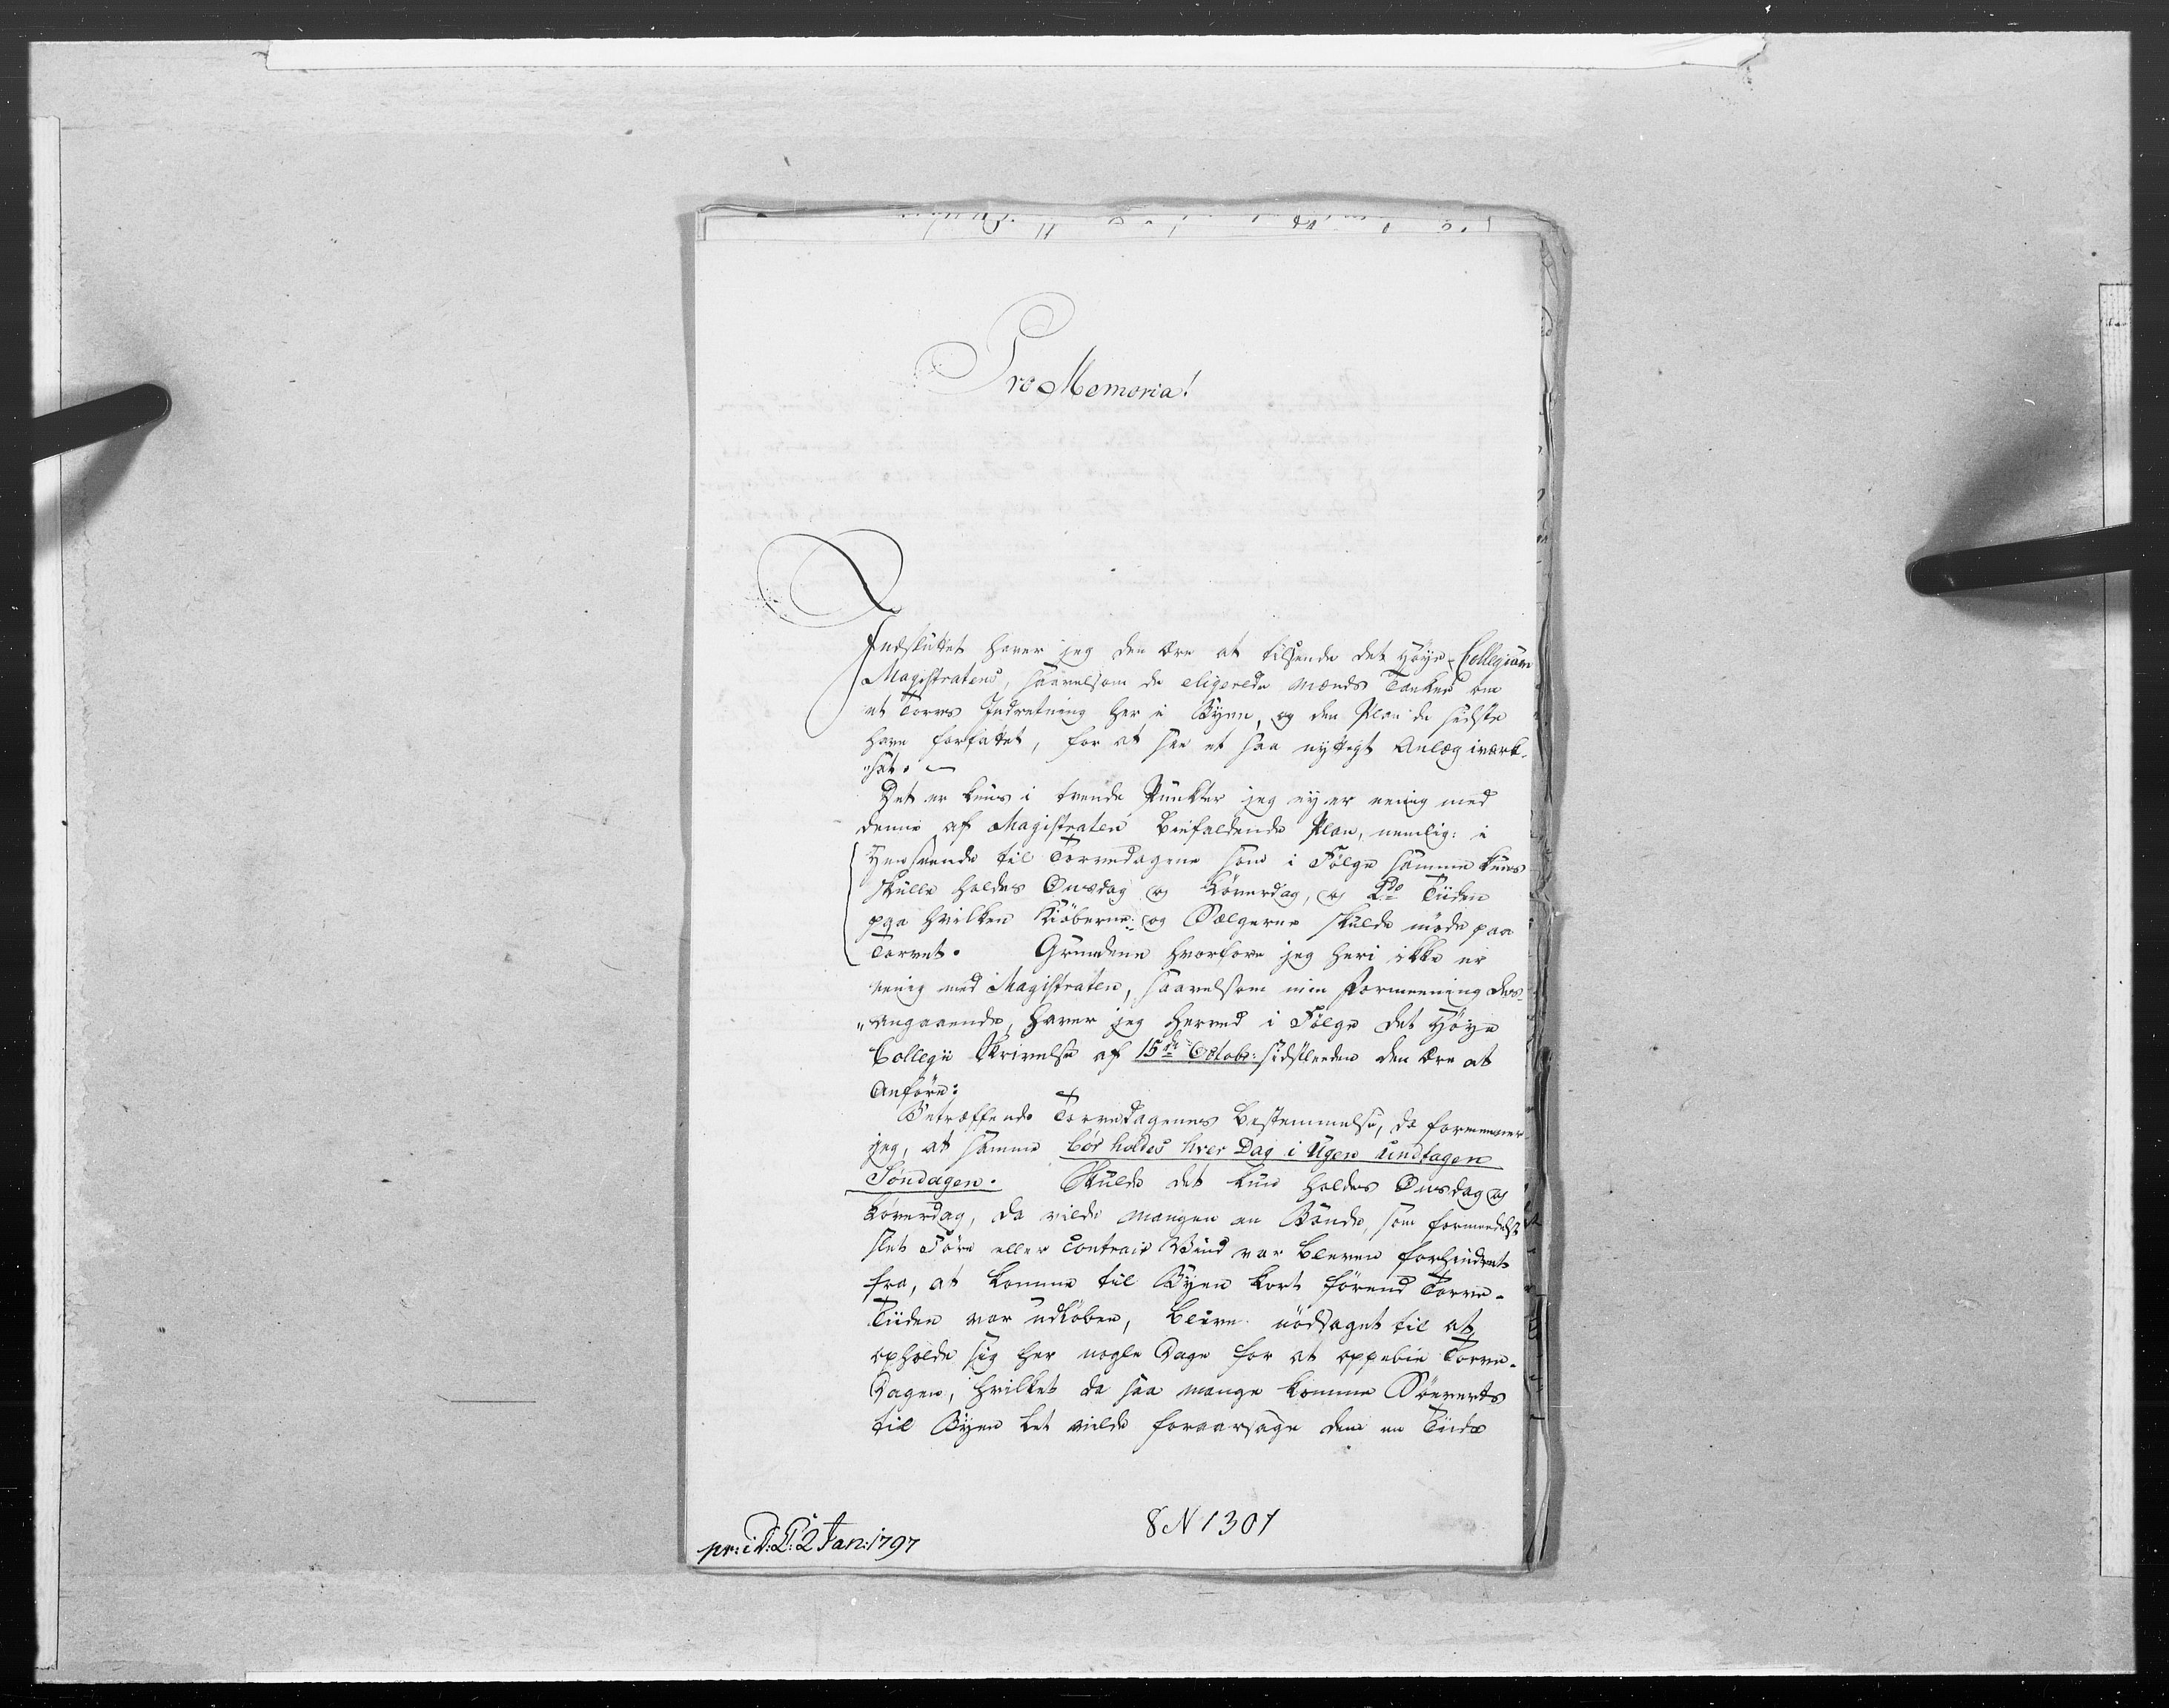 Pro Memoria!
Indsluttet haver jeg den Ære at tilsende det Høye Collegium
Magistratens, saavelsom de eligerede Mænds Tanker om
et Torvs Indretning her i Byen, og den Plan de sidste
have forfattet, for at see et saa nyttigt Anlæg iværk-
"sat.
Det er kuns i tvende Punkter jeg ey er eenig med
denne af Magistraten bifaldende Plan, nemlig: i
Henseende til Torvedagene som i Følge samme kuns
skulle holdes Onsdag og Løverdag, og 2do Tiiden
paa hvilken Kiøberne og Sælgerne skulde møde paa
Torvet. Grundene hvorfore jeg heri ikke er
eenig med Magistraten, saavelsom min Formeening des-
"angaaende, haver jeg herved i Følge det Høye
Collegii Skrivelse af 15de Octobr: sidstleeden den Ære at
Anføre:
Betræffende Torvedagenes Bestemmelse, da formeener
jeg, at samme bør holdes hver Dag i Ugen undtagen
Søndagen. Skulde det kun holdes Onsdag og
Løverdag, da vilde mangen en Bonde, som formedelst
slet Føre eller Contrair Wind var bleven forhindret
fra, at komme til Byen kort førend Torve-
Tiiden var udløben, blive nødsaget til at
opholde sig her nogle Dage for at oppebie Torve-
Dagen, hvilket da saa mange komme Søeverts
til Byen let vilde foraarsage dem en Tiids
8 N 1301
pr: i D: C: 2 Jan: 1797